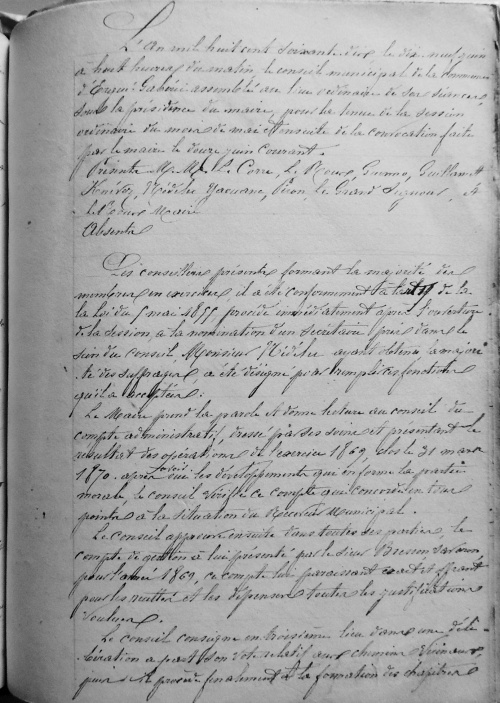 L'An mil huit cent soixante dix le dix neuf juin
à huit heures du matin, le conseil municipal de la Commune
d'Ergué-Gabéric assemblé au lieu ordinaire de ses séances
sous la présidence du maire, pour la tenue de la session
ordinaire du mois de mai et ensuite de la convocation faite
par le maire le douze juin courant.
Présents M.M. Le Corre, Le Roux,
Nédélec, Le Grand,
Maire
Absents
Les conseillers présents formant la majorité des
membres en exercice il a été conformément à l'art de la
la loi du 5 mai 1855 procédé immédiatement après l'ouverture
de la session, à la nomination d'un Secrétaire pris dans le
sein du conseil, Monsieur Nédélec ayant obtenu la majori-
té des suffrages, a été désigné pour remplir ces fonctions
qu'il a acceptées.
Le Maire prend la parole et donne lecture au conseil du
compte administratif, dressé par ses soins et présentant le
résultat des opérations de l'exercice 1869, clos le 31 mars
1870. après avoir ouï les développements qui en forme la partie
morale, le conseil vérifie ce compte au concordé en tous
points à la situation du Receveur Municipal.
Le Conseil approuve ensuite dans toutes ses parties, le
compte de gestion à lui présenté par le sieur
pour l'année 1869, ce compte lui paraissant exact et offrant
pour les recettes et les dépenses toutes les justifications
voulues.
Le Conseil consigne en troisième lieu dans une déli-
bération à part son vote relatif aux chemins vicinaux
puis il procède finalement à la formation des chapitres